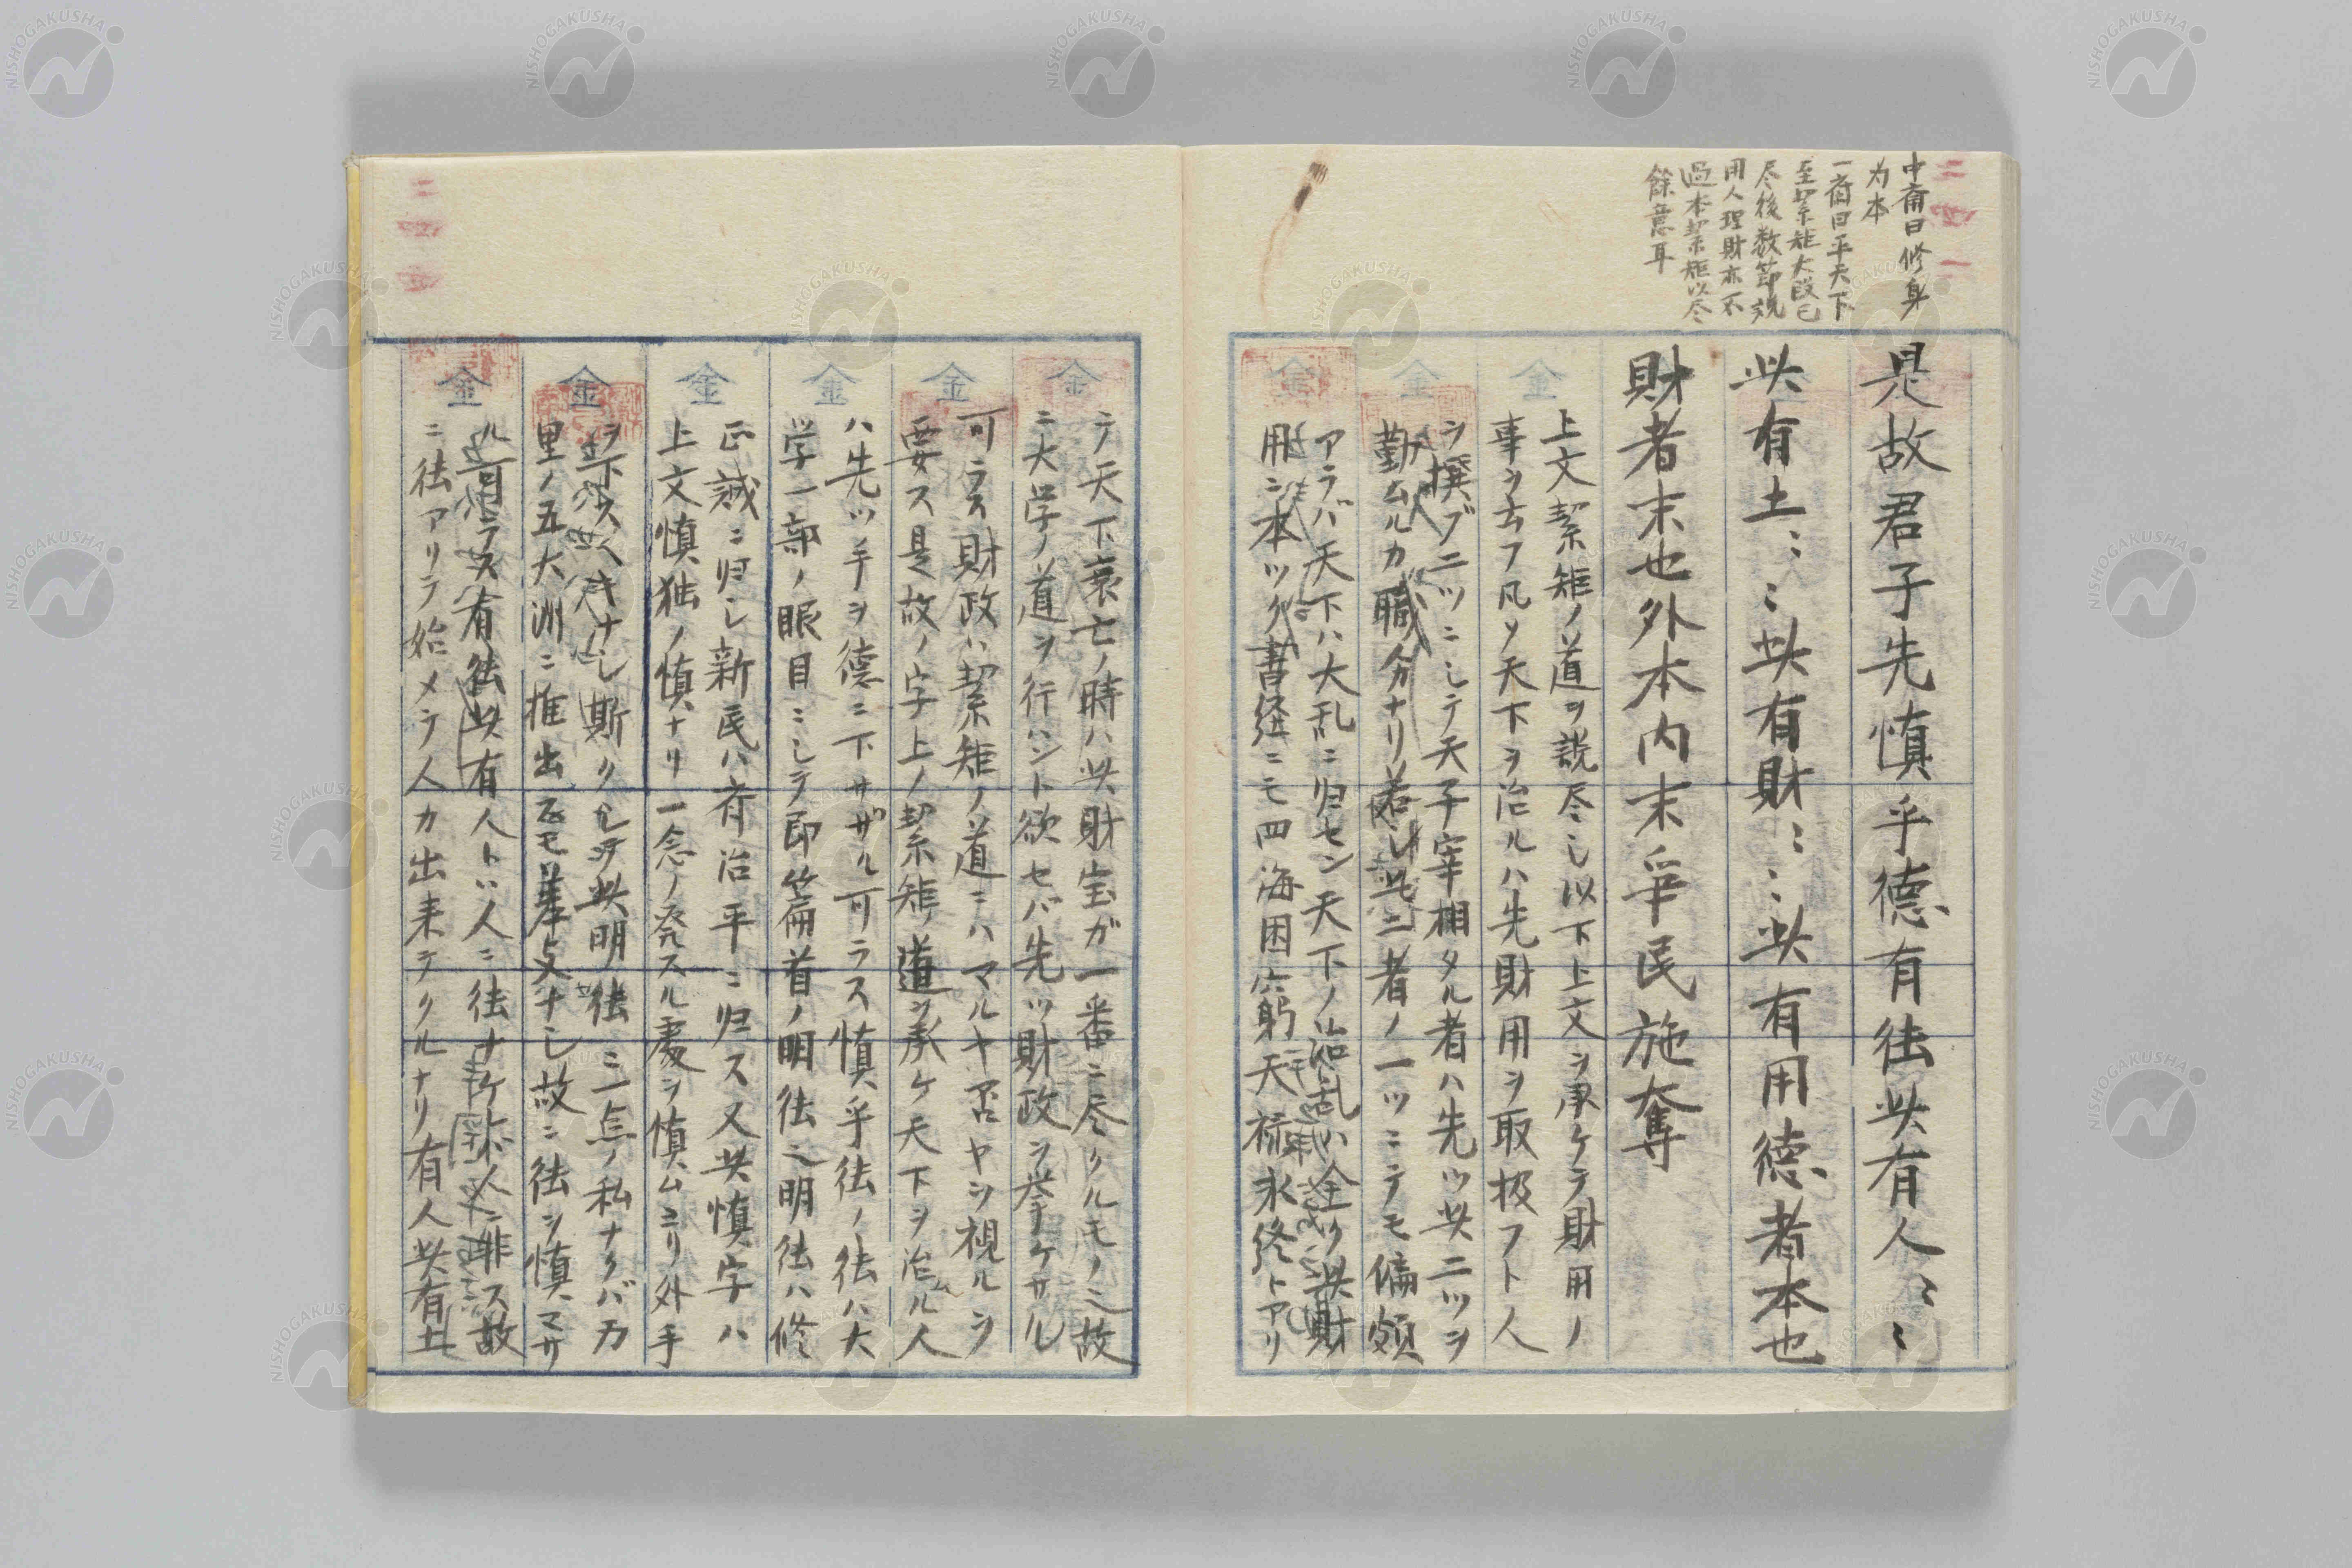 中斎曰修身
为本
一斎曰平天下
至絜矩大段已
尽後数節説
用人理財亦不
過本絜矩以尽
餘意耳
是故君子先慎乎徳有徳此有人〻〻
此有土〻〻此有財〻〻此有用徳者本也
財者末也外本内末争民施奪
上文絜矩ノ道ヲ説尽シ以下上文ヲ承ケテ財用ノ
事ヲ云フ凡ソ天下ヲ治ルハ先財用ヲ取扱フト人
ヲ撰ブニツニシテ天子宰相タル者ハ先ツ此二ツヲ
勤ムルカ職分ナリ若シ此二者ノ一ツニテモ偏頗
アラバ天下ハ大乱ニ归セン天下ノ治乱ハ全ク此財
用ニ本ツク書経ニモ四海困窮天禄永終トアリ
テ天下衰亡ノ時ハ此財宝ガ一番ニ尽クルモノ也故
ニ大学ノ道ヲ行ハント欲セバ先ツ財政ヲ挙ケサル
可ラス財政ハ絜矩ノ道ニハマルヤ否ヤヲ視ルヲ
要ス是故ノ字上ノ絜矩ノ道ヲ承ケ天下ヲ治ル人
ハ先ツ手ヲ徳ニ下サザル可ラス慎乎徳ノ徳ハ大
学一部ノ眼目ニシテ即篇首ノ明徳也明徳ハ修
正誠ニ归シ新民ハ斉治平ニ归ス又此慎字ハ
上文慎独ノ慎ナリ一念ノ発スル処ヲ慎ムヨリ外手
ヲ下ス处ナシ斯ク此明徳ニ一点ノ私ナクバ万
里ノ五大洲ニ推出モ差支ナシ故ニ徳ヲ慎マサ
ル可ラス有徳此有人トハ人ニ徳ナケレバ人ニ非ス故
ニ徳アリテ始メテ人カ出来テクルナリ有人此有土